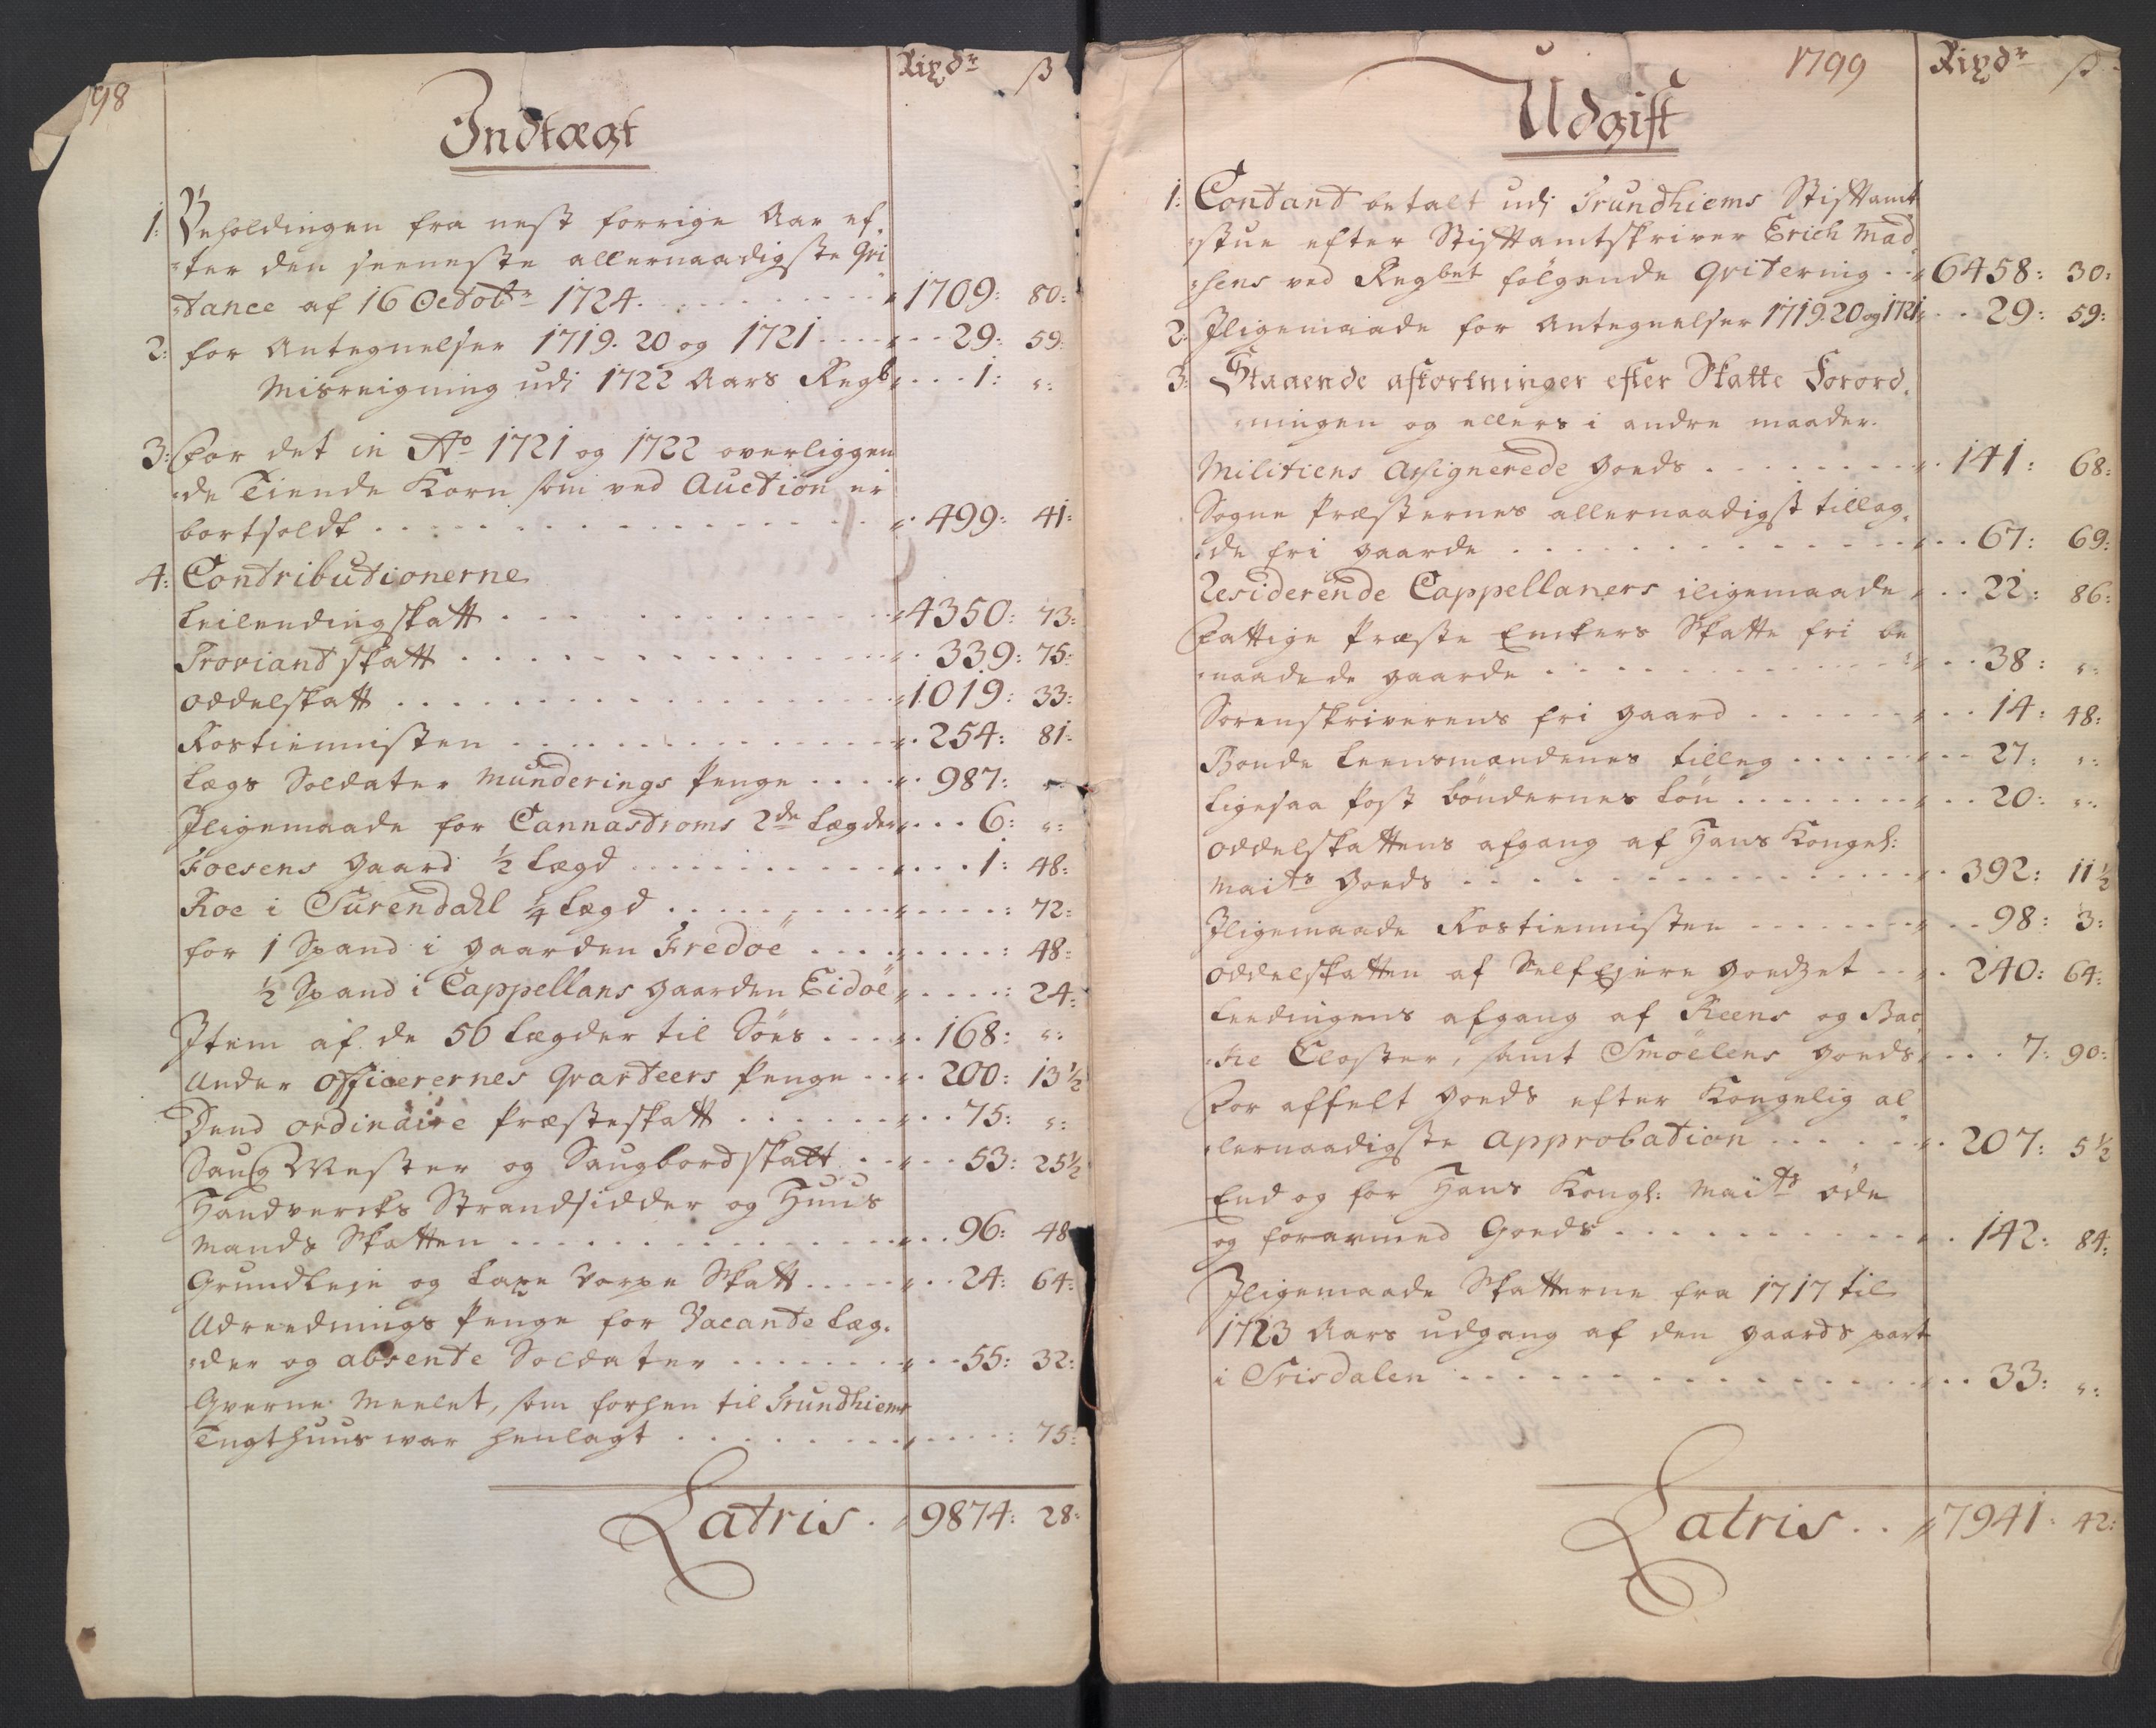 98
Rixdr ß
Indtægt
1: Beholdingen fra nest forrige Aar ef-
ter den seeneste allernaadigste Qvi
tance af 16 Octobr 1724 1709: 80:
2: for Antegnelser 1719. 20 og 1721 29: 59:
Misreigning udi 1722 Aars Regb 1: ":
3: For det in Ao 1721 og 1722 overliggen
de Tiende Korn som ved Auction er
bortsoldt 499: 41:
4: Contributionerne
Leilendingskatt 4350: 73:
Proviant skatt 339: 75:
Oddelskatt 1019: 33:
Rostiennisten 254: 81:
Lægs Soldater Munderings Penge 987: ":
Iligemaade for Cannastroms 2de Lægder 6: ":
Foesens gaard ½ Lægd 1: 48:
Roe i Surendahl ¼ Lægd : 72:
for 1 Spand i gaarden Fredöe : 48:
½ Spand i Cappellans gaarden Eidöe : 24:
Item af de 56 Lægder til Söes 168: ":
Under Officerernes Qvarteers Penge 200: 13½
Dend ordinaire Præsteskatt 75: ":
Saug Mester og Saugbordskatt 53: 25½
Handvercks Strandsidder og Huus
mands Skatten 96: 48
Grundleje og Laxe Varpe Skatt 24: 64:
Udreednings Penge for Vacante Læg-
der og absente Soldater 55: 32:
Qverne Meelet, som forhen til Trundhiems
Tugthuus war henlagt : 75:
Latris 9874: 28:
1799
Rixdr ß
Udgift
1: Contant betalt udj Trundhiems Stiftamt
stue efter Stiftamtskriver Erich Mad
sens ved Regbet fölgende Qvitering 6458: 30:
2: Iligemaade for Antegnelser 1719. 20 og 1721 29: 59:
3: Staaende afkortninger efter Skatte Forord-
ningen og ellers i andre maader.
Militiens Assignerede goeds 141: 68:
Sogne Præsternes allernaadigst tillag-
de fri gaarde 67: 69:
Residerende Cappellaners iligemaade 22: 86:
Fattige Præste Enckers Skatte fri be
naadede gaarde 38: ":
Sorenskriverens fri gaard 14: 48:
Bonde Leensmandenes tilleg 27: ":
Ligesaa Post böndernes Lön 20: ":
Oddelskattens afgang af Hans Kongel:
Maits goeds 392: 11½
Iligemaade Rostiennisten 98: 3:
Oddelskatten af Selfejere goedzet 240: 64:
Leedingens afgang af Reens og Bac
ke Closter, samt Smöelens goeds 7: 90:
For affelt goeds efter Kongelig al
lernaadigste Approbation 207: 5½
End og for Hans Kongl: Maits öde
og forarmed Goeds 142: 84:
Iligemaade Skatterne fra 1717 til
1723 Aars udgang af den gaards part
i Trisdalen 33: ":
Latris 7941: 42: